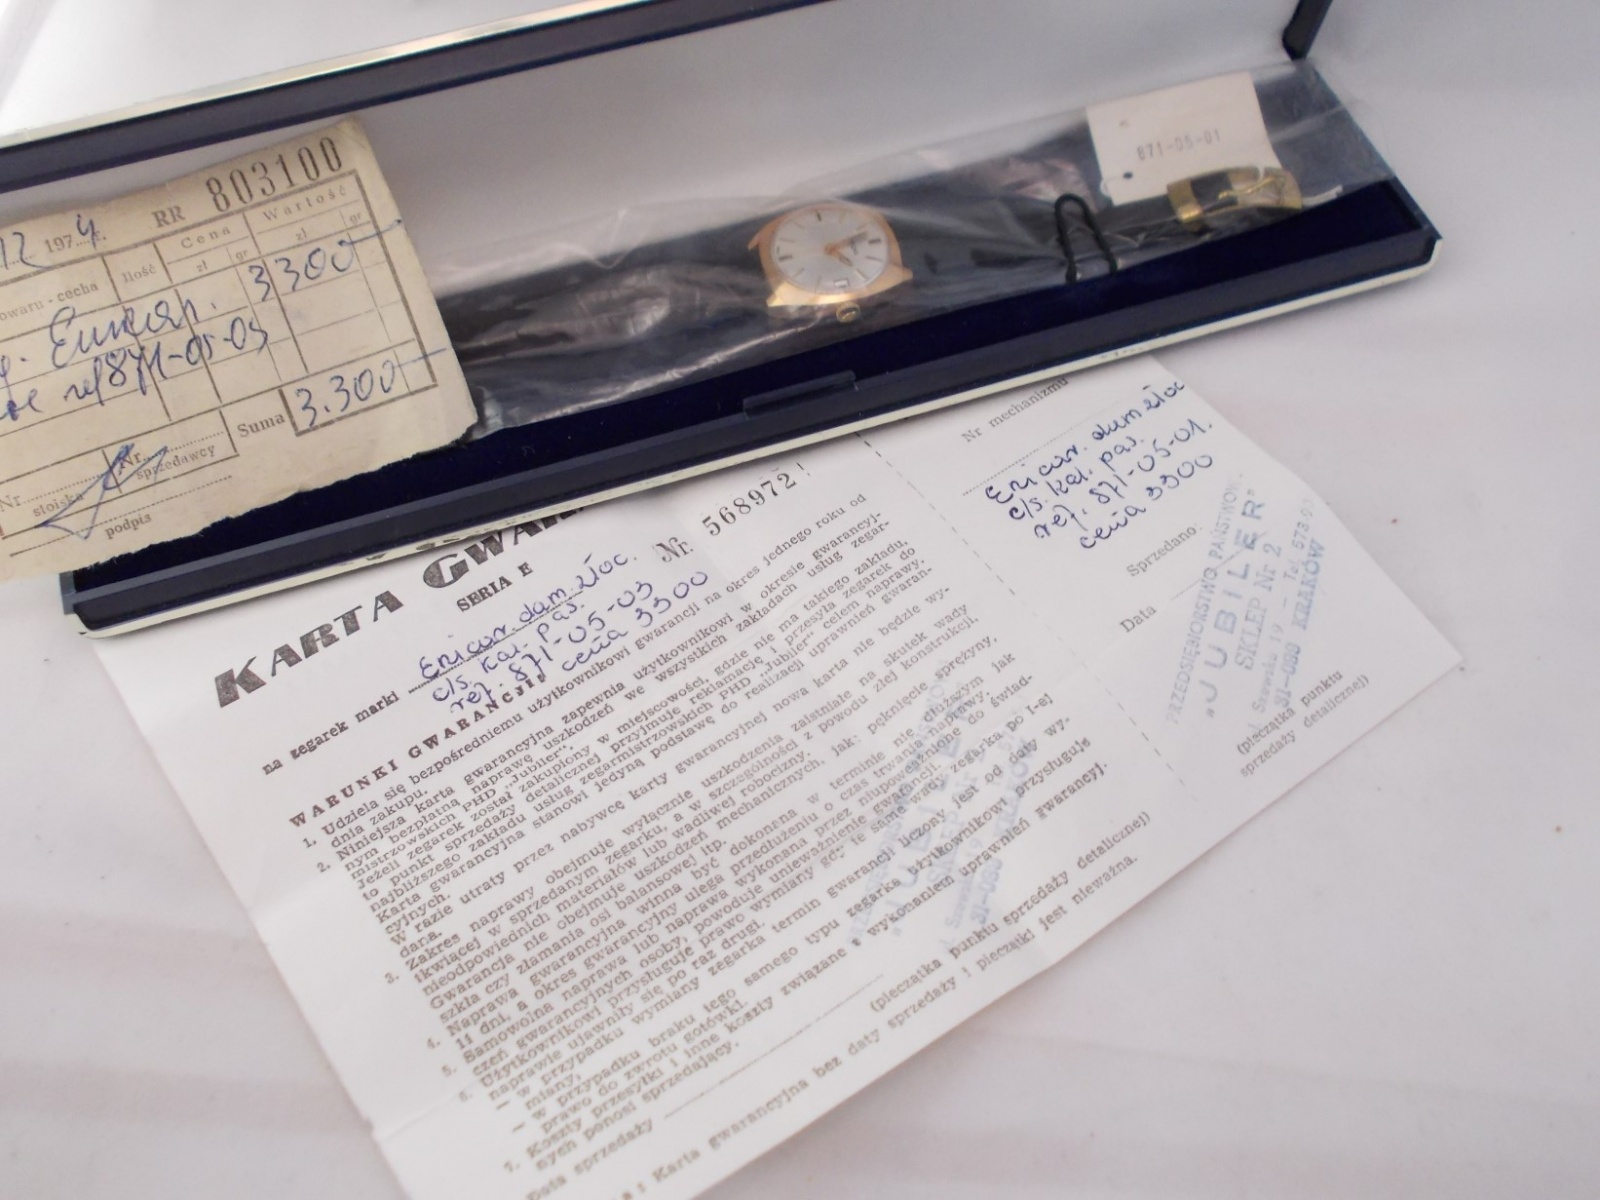 RR 803100
12 1974 r.
owaru - cecha
Ilość
Cena
zł gr
Wartość
zł gr
3300
ref 871-05-03
Suma 3.300
Nr
stoiska
Nr
sprzedawcy
podpis
871-05-01
KARTA
SERIA E
Nr 568972
na zegarek marki Enicar dam. złoc.
c/s. kal. pas.
ref. 871-05-03
cena 3300
WARUNKI GWARANCJI:
1. Udziela się bezpośredniemu użytkownikowi gwarancji na okres jednego roku od
dnia zakupu.
2. Niniejsza karta gwarancyjna zapewnia użytkownikowi w okresie gwarancyj-
nym bezpłatną naprawę uszkodzeń we wszystkich zakładach usług zegar-
mistrzowskich PHD „Jubiler".
Jeżeli zegarek został zakupiony w miejscowości, gdzie nie ma takiego zakładu,
to punkt sprzedaży detalicznej przyjmuje reklamację i przesyła zegarek do
najbliższego zakładu usług zegarmistrzowskich PHD „Jubiler" celem naprawy.
Karta gwarancyjna stanowi jedyną podstawę do realizacji uprawnień gwaran-
cyjnych.
W razie utraty przez nabywcę karty gwarancyjnej nowa karta nie będzie wy-
dana.
3. Zakres naprawy obejmuje wyłącznie uszkodzenia zaistniałe na skutek wady
tkwiącej w sprzedanym zegarku, a w szczególności z powodu złej konstrukcji,
nieodpowiednich materiałów lub wadliwej robocizny.
Gwarancja nie obejmuje uszkodzeń mechanicznych, jak: pęknięcie sprężyny,
szkła czy złamania osi balansowej itp.
4. Naprawa gwarancyjna winna być dokonana w terminie nie dłuższym jak
11 dni, a okres gwarancyjny ulega przedłużeniu o czas trwania naprawy.
5. Samowolna naprawa lub naprawa wykonana przez nieupoważnione do świad-
czeń gwarancyjnych osoby, powoduje unieważnienie gwarancji.
6. Użytkownikowi przysługuje prawo wymiany gdy te same wady zegarka po 1-ej
naprawie ujawniły się po raz drugi.
— w przypadku wymiany zegarka termin gwarancji liczony jest od daty wy-
miany,
— w przypadku braku tego samego typu zegarka użytkownikowi przysługuje
prawo do zwrotu gotówki.
7. Koszty przesyłki i inne koszty związane z wykonaniem uprawnień gwarancyj-
nych ponosi sprzedający.
Data sprzedaży
(pieczątka punktu sprzedaży detalicznej)
Karta gwarancyjna bez daty sprzedaży i pieczątki jest nieważna.
Nr mechanizmu
Enicar. dam złoc
c/s. kal. pas.
ref. 871-05-01.
cena 3300
Sprzedano:
Data
PRZEDSIĘBIORSTWO PAŃSTWOW.
„JUBILER"
SKLEP Nr 2
31-090 KRAKÓW
(pieczątka punktu
sprzedaży detalicznej)